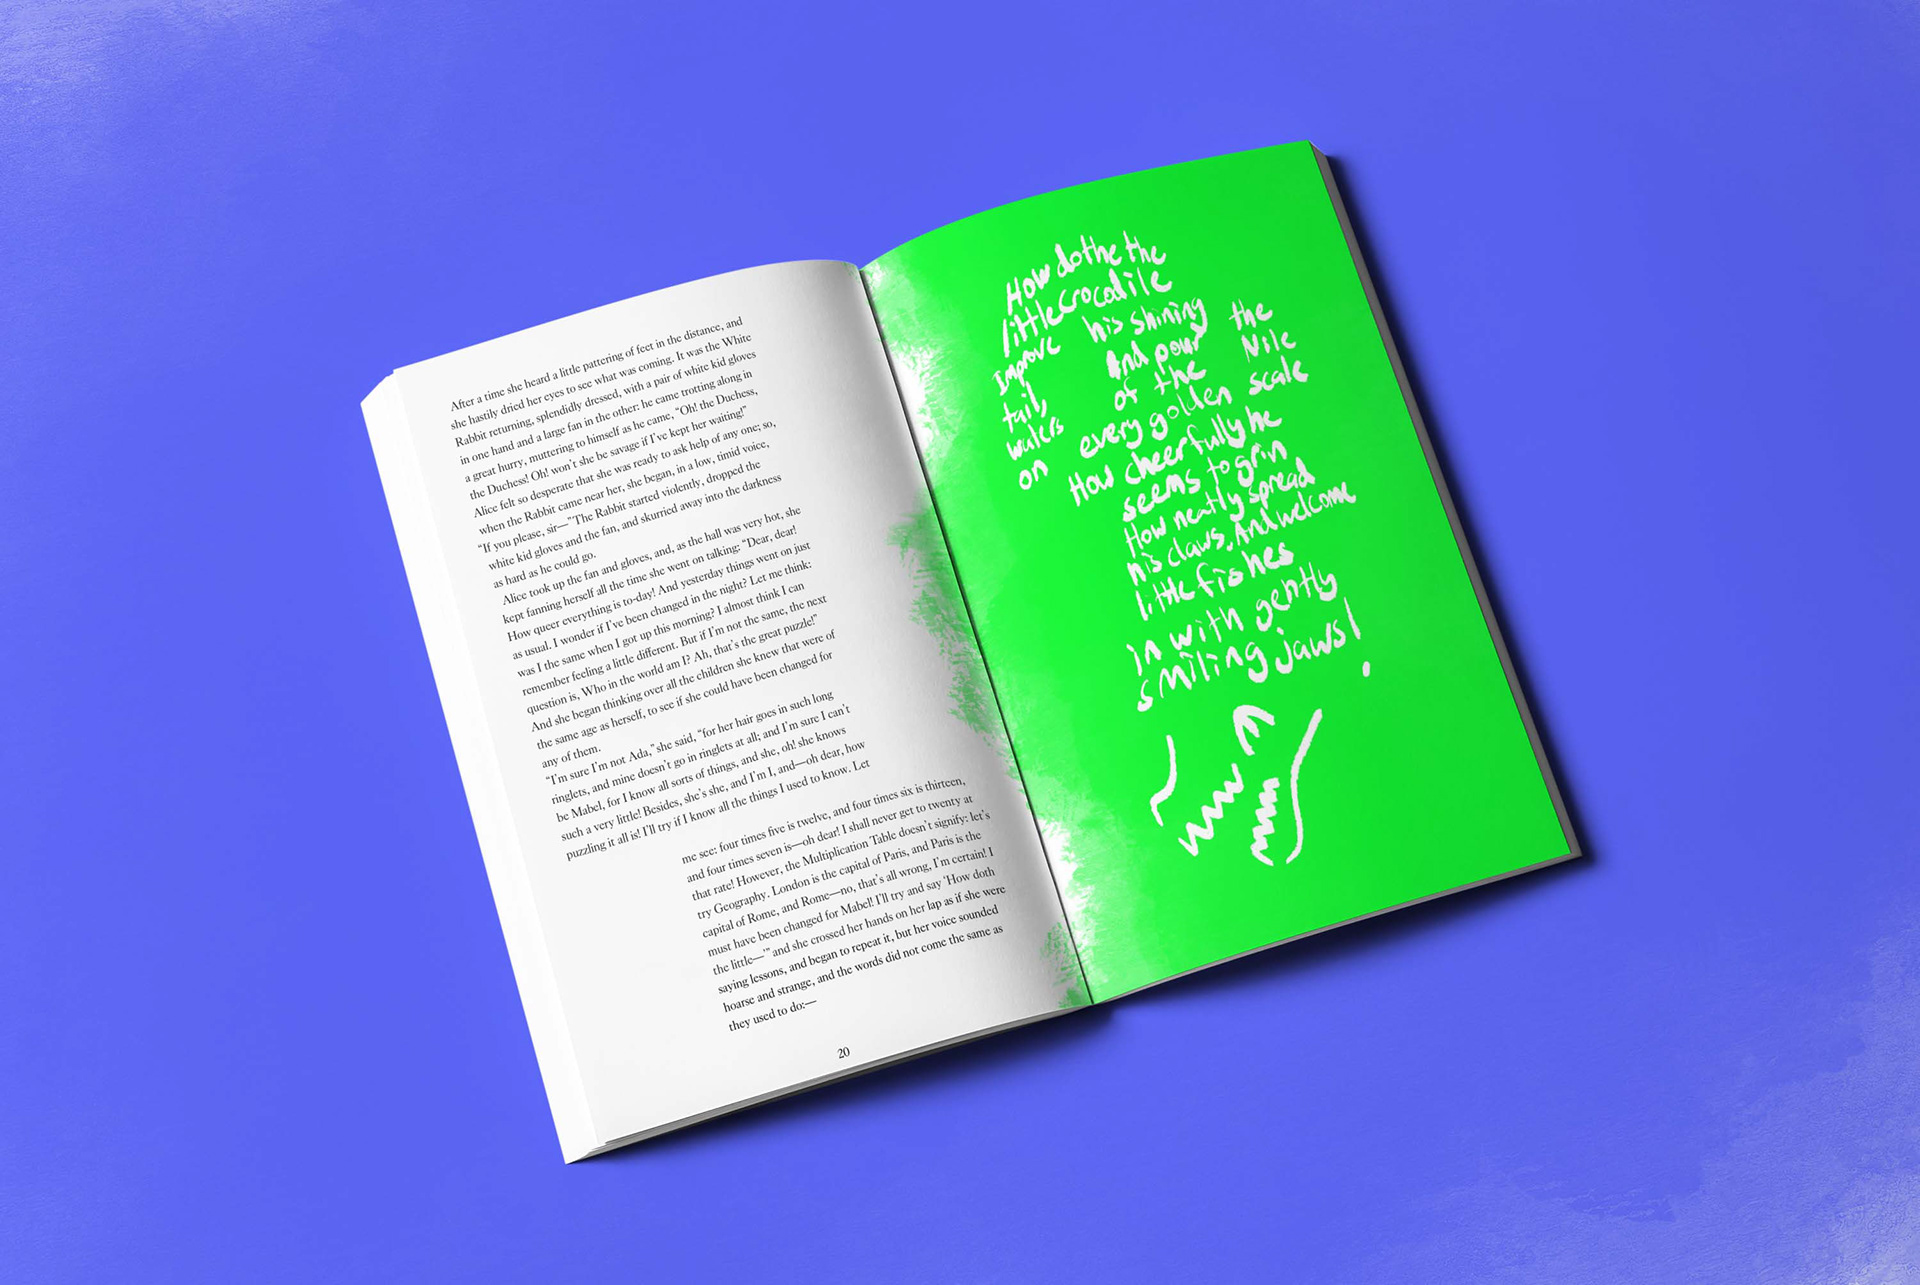 After a time she heard a little pattering of feet in the distance, and
she hastily dried her eyes to see what was coming. It was the White
Rabbit returning, splendidly dressed, with a pair of white kid gloves
in one hand and a large fan in the other: he came trotting along in
a great hurry, muttering to himself as he came, “Oh! the Duchess,
the Duchess! Oh! won’t she be savage if I’ve kept her waiting!”
Alice felt so desperate that she was ready to ask help of any one; so,
when the Rabbit came near her, she began, in a low, timid voice,
“If you please, sir—” The Rabbit started violently, dropped the
white kid gloves and the fan, and skurried away into the darkness
as hard as he could go.
Alice took up the fan and gloves, and, as the hall was very hot, she
kept fanning herself all the time she went on talking: “Dear, dear!
How queer everything is to-day! And yesterday things went on just
as usual. I wonder if I’ve been changed in the night? Let me think:
was I the same when I got up this morning? I almost think I can
remember feeling a little different. But if I’m not the same, the next
question is, Who in the world am I? Ah, that’s the great puzzle!”
And she began thinking over all the children she knew that were of
the same age as herself, to see if she could have been changed for
any of them.
“I’m sure I’m not Ada,” she said, “for her hair goes in such long
ringlets, and mine doesn’t go in ringlets at all; and I’m sure I can’t
be Mabel, for I know all sorts of things, and she, oh! she knows
such a very little! Besides, she’s she, and I’m I, and—oh dear, how
puzzling it all is! I’ll try if I know all the things I used to know. Let
me see: four times five is twelve, and four times six is thirteen,
and four times seven is—oh dear! I shall never get to twenty at
that rate! However, the Multiplication Table doesn’t signify: let’s
try Geography. London is the capital of Paris, and Paris is the
capital of Rome, and Rome—no, that’s all wrong, I’m certain! I
must have been changed for Mabel! I’ll try and say ‘How doth
the little—’” and she crossed her hands on her lap as if she were
saying lessons, and began to repeat it, but her voice sounded
hoarse and strange, and the words did not come the same as
they used to do:—
20
How dothe the
little Crocodile
Improve his shining
tail, And pour the
waters of the Nile
on every golden scale
How cheerfully he
seems to grin
How neatly spread
his claws, And welcome
little fishes
in with gently
smiling jaws!